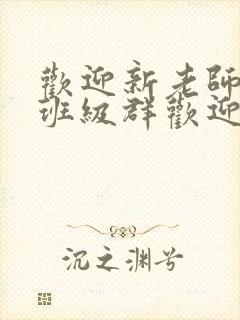 歡迎新老師
班級群歡迎
沉之渊兮